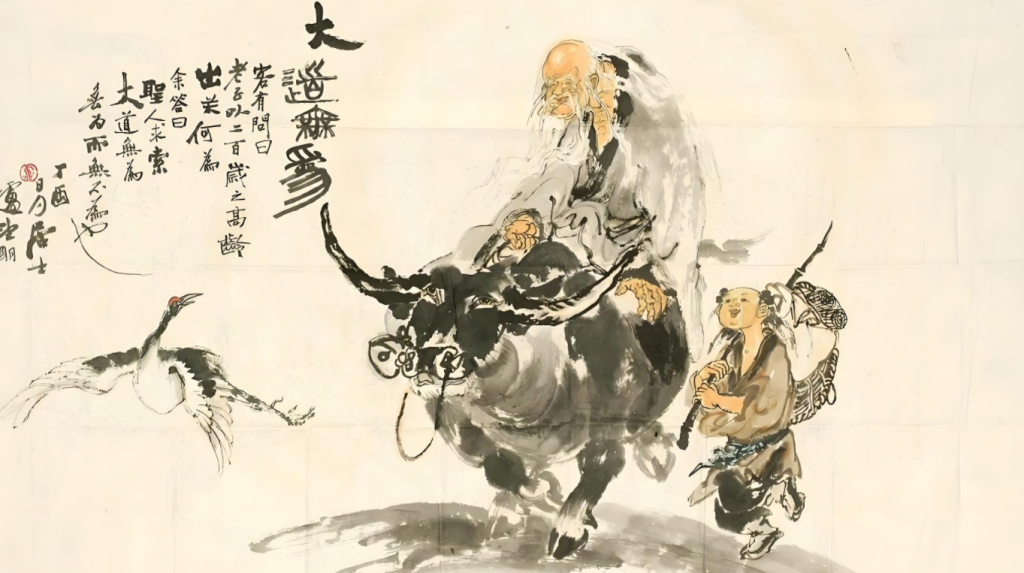 大道無為
客有問曰
老子以二百歲之高齡
出关何為
余答曰
聖人求索
大道無為
無为而無不為也
丁酉
日月居士